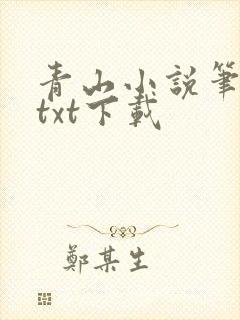 青山小説筆
txt下載
鄭某生